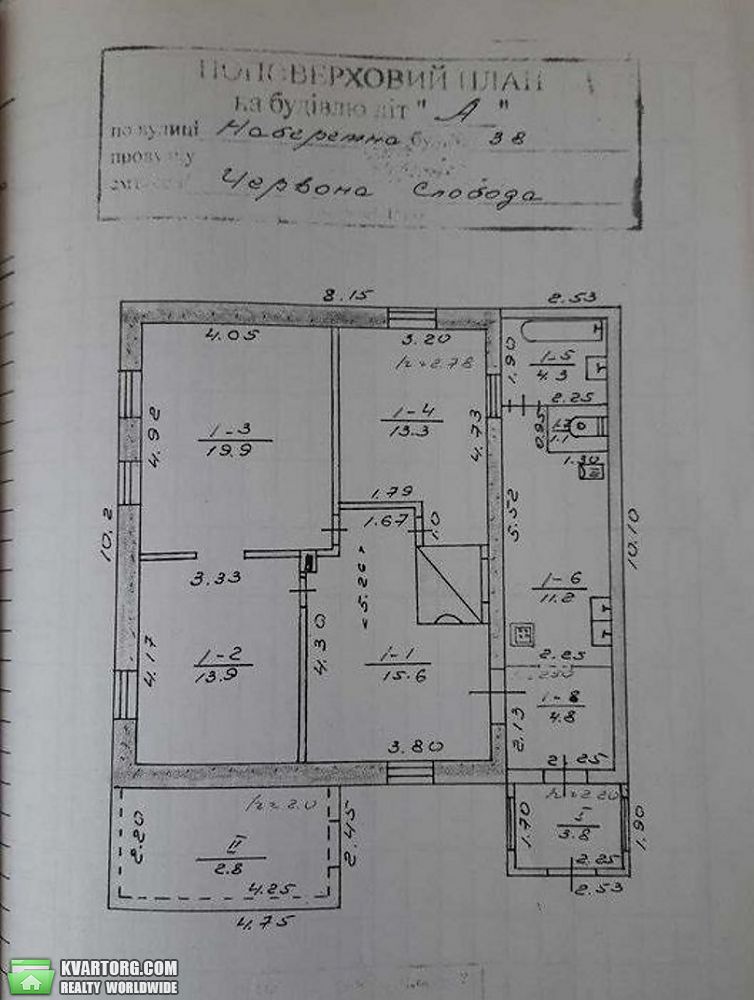 ПОПОВЕРХОВИЙ ПЛАН
на будівлю літ "А"
по вулиці Набережна буд. 38
провулку
Червона Слобода
8.15
2.53
4.05
3.20
h=2.78
1.90
1-5
4.3
2.25
4.92
1-3
19.9
1-4
13.3
4.73
0.85
1.1
1.30
1.79
1.67
1.0
5.52
10.2
10.10
3.33
5.26
1-6
11.2
4.17
1-2
13.9
4.30
1-1
15.6
2.25
2.50
1-8
4.8
2.13
3.80
2.25
h=2.20
h=2.0
2.20
II
2.8
2.45
1.70
I
3.8
1.90
4.25
2.25
2.53
4.75
KVARTORG.COM
REALTY WORLDWIDE